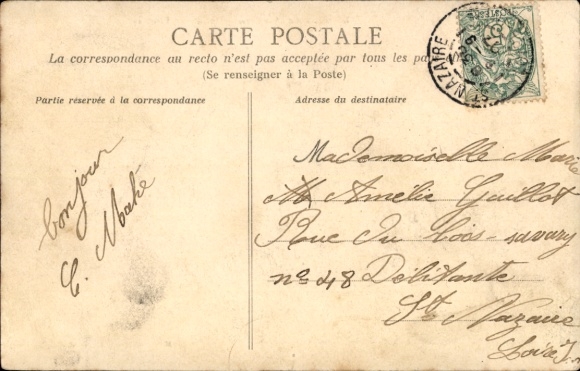 CARTE POSTALE
La correspondance au recto n'est pas acceptée par tous les pa
(Se renseigner à la Poste)
Partie réservée à la correspondance
Adresse du destinataire
ST NAZAIRE
bonjour
Mademoiselle Marie
Amélie Guillot
Rue du bois-savary
nº 48 Débitante
St Nazaire
Loire I